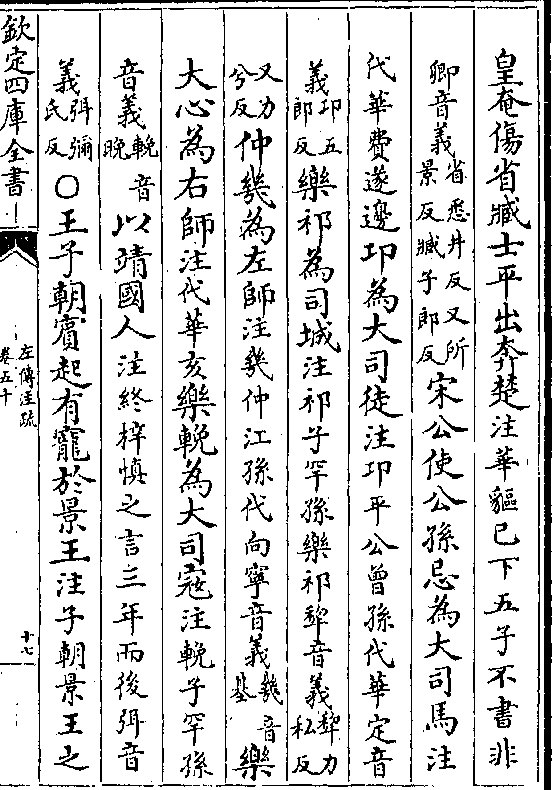 皇奄傷省臧士平出奔楚注華貙已下五子不書非
卿音義省悉井反又所景反臧子郎反宋公使公孫忌為大司馬注
代華費遂邊卬為大司徒注卬平公曾孫代華定音
義卬五郎反樂祁為司城注祁子罕孫樂祁犂音義犂力私反
又力兮反仲幾為左師注幾仲江孫代向寧音義幾音基樂
大心為右師注代華亥樂輓為大司寇注輓子罕孫
音義輓音晚以靖國人注終梓慎之言三年而後弭音
義弭彌氏反〇王子朝賓起有寵於景王注子朝景王之
欽定四庫全書
左傳注疏
卷五十
十七